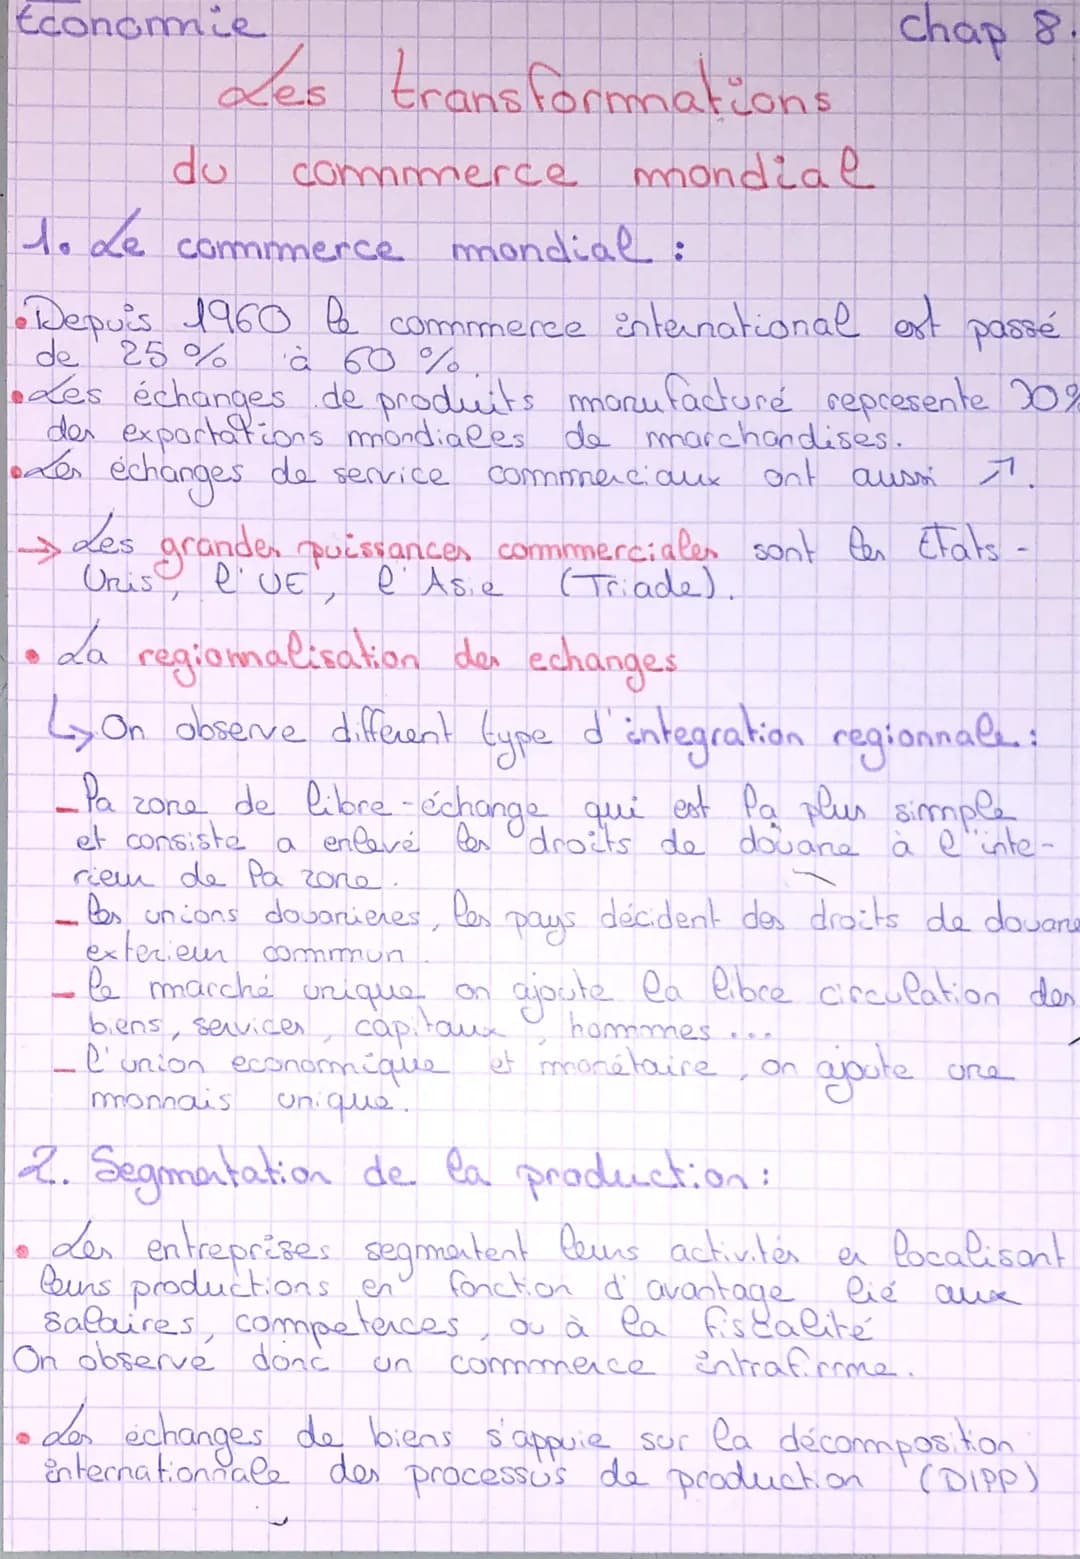 Economie Chap 8.
Les transformations
du commerce mondial
1. Le commerce mondial :
• Depuis 1960 le commerce international est passé
de 25% à 60%.
• Les échanges de produits manufacturé represente 70%
des exportations mondiales de marchandises.
• Les échanges de service commerciaux ont aussi ↗.
→ Les grandes puissances commerciales sont les Etats-
Unis, l'UE, l'Asie (Triade).
• La regionnalisation des echanges
↳ On observe different type d'integration regionnale :
- la zone de libre-échange qui est la plus simple
et consiste a enlevé les droits de douane à l'inte-
rieur de la zone.
- les unions douanieres, les pays décident des droits de douane
exterieur commun.
- le marché unique on ajoute la libre circulation des
biens, services, capitaux, hommes ...
- l'union economique et monétaire, on ajoute une
monnais unique.
2. Segmentation de la production :
• Les entreprises segmentent leurs activités en localisant
leurs productions en fonction d'avantage lié aux
salaires, competences, ou à la fiscalité
On observe donc un commerce intrafirme.
• Les échanges de biens s'appuie sur la décomposition
internationnale des processus de production (DIPP)